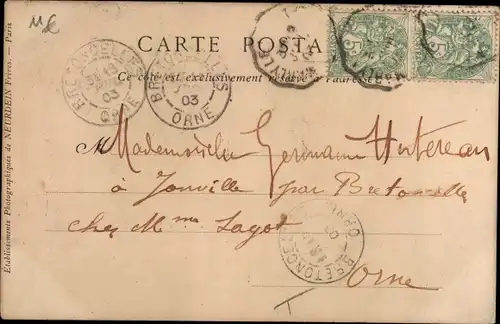 ME
CARTE POSTA
Ce côté est exclusivement réservé à l'adresse
BRETONCELLES
03
ORNE
BRETONCELLES
03
ORNE
5
5
Mademoiselle Germaine
à Jonville par Bretoncelles
chez Mme Lagot
Orne
BRETONCELLES
T
Etablissements Photographiques de NEURDEIN Frères. — Paris